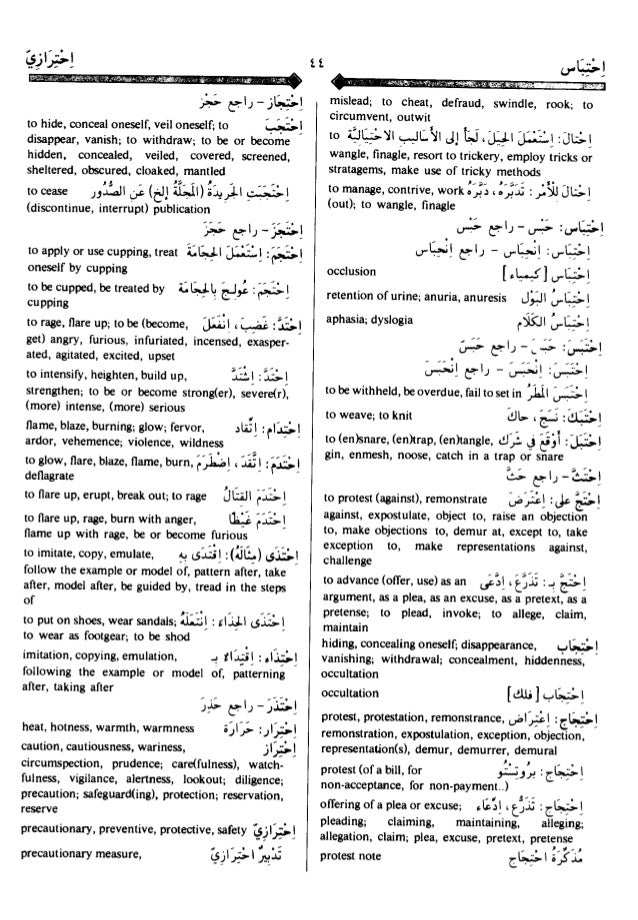 اِحْتِبَاس ٤٤ اِحْتِرَازِيّ
mislead; to cheat, defraud, swindle, rook; to
circumvent, outwit
اِحْتَالَ: اِسْتَعْمَلَ الحِيَلَ، لَجَأَ إلى الأَسَالِيبِ الاحْتِيَالِيَّة to
wangle, finagle, resort to trickery, employ tricks or
stratagems, make use of tricky methods
اِحْتَالَ لِلأَمْر: تَدَبَّرَهُ، دَبَّرَهُ to manage, contrive, work
(out); to wangle, finagle
اِحْتِبَاس: حَبْس - راجع حَبْس
اِحْتِبَاس: اِنْحِبَاس - راجع اِنْحِبَاس
اِحْتِبَاس [كيمياء] occlusion
اِحْتِبَاسُ البَوْل retention of urine; anuria, anuresis
اِحْتِبَاسُ الكَلَام aphasia; dyslogia
اِحْتَبَسَ: حَبَسَ - راجع حَبَسَ
اِحْتَبَسَ: اِنْحَبَسَ - راجع اِنْحَبَسَ
اِحْتَبَسَ المَطَرُ to be withheld, be overdue, fail to set in
اِحْتَبَكَ: نَسَجَ، حاكَ to weave; to knit
اِحْتَبَلَ: أَوْقَعَ في شَرَك to (en)snare, (en)trap, (en)tangle,
gin, enmesh, noose, catch in a trap or snare
اِحْتَثَّ - راجع حَثَّ
اِحْتَجَّ على: اِعْتَرَضَ to protest (against), remonstrate
against, expostulate, object to, raise an objection
to, make objections to, demur at, except to, take
exception to, make representations against,
challenge
اِحْتَجَّ بـ: تَذَرَّعَ، اِدَّعَى to advance (offer, use) as an
argument, as a plea, as an excuse, as a pretext, as a
pretense; to plead, invoke; to allege, claim,
maintain
اِحْتِجَاب hiding, concealing oneself; disappearance,
vanishing; withdrawal; concealment, hiddenness,
occultation
اِحْتِجَاب [فلك] occultation
اِحْتِجَاج: اِعْتِرَاض protest, protestation, remonstrance,
remonstration, expostulation, exception, objection,
representation(s), demur, demurrer, demural
اِحْتِجَاج: بَرُوتِسْتُو protest (of a bill, for
non-acceptance, for non-payment..)
اِحْتِجَاج: تَذَرُّع، اِدِّعَاء offering of a plea or excuse;
pleading; claiming, maintaining, alleging;
allegation, claim; plea, excuse, pretext, pretense
مُذَكِّرَةُ احْتِجَاج protest note
اِحْتِجَاز - راجع حَجْز
اِحْتَجَبَ to hide, conceal oneself, veil oneself; to
disappear, vanish; to withdraw; to be or become
hidden, concealed, veiled, covered, screened,
sheltered, obscured, cloaked, mantled
اِحْتَجَبَتِ الجَرِيدَةُ (المَجَلَّةُ إلخ) عَنِ الصُّدُور to cease
(discontinue, interrupt) publication
اِحْتَجَزَ - راجع حَجَزَ
اِحْتَجَمَ: اِسْتَعْمَلَ الحِجَامَةَ to apply or use cupping, treat
oneself by cupping
اِحْتَجَمَ: عُولِجَ بِالحِجَامَة to be cupped, be treated by
cupping
اِحْتَدَّ: غَضِبَ، اِنْفَعَلَ to rage, flare up; to be (become,
get) angry, furious, infuriated, incensed, exasper-
ated, agitated, excited, upset
اِحْتَدَّ: اِشْتَدَّ to intensify, heighten, build up,
strengthen; to be or become strong(er), severe(r),
(more) intense, (more) serious
اِحْتِدَام: اِتِّقَاد flame, blaze, burning; glow; fervor,
ardor, vehemence; violence, wildness
اِحْتَدَمَ: اِتَّقَدَ، اِضْطَرَمَ to glow, flare, blaze, flame, burn,
deflagrate
اِحْتَدَمَ القِتَالُ to flare up, erupt, break out; to rage
اِحْتَدَمَ غَيْظًا to flare up, rage, burn with anger,
flame up with rage, be or become furious
اِحْتَذَى (مِثَالَهُ): اِقْتَدَى بِهِ to imitate, copy, emulate,
follow the example or model of, pattern after, take
after, model after, be guided by, tread in the steps
of
اِحْتَذَى الحِذَاءَ: اِنْتَعَلَهُ to put on shoes, wear sandals;
to wear as footgear; to be shod
اِحْتِذَاء: اِقْتِدَاء بـ imitation, copying, emulation,
following the example or model of, patterning
after, taking after
اِحْتَذَرَ - راجع حَذِرَ
اِحْتِرَار: حَرَارَة heat, hotness, warmth, warmness
اِحْتِرَاز caution, cautiousness, wariness,
circumspection, prudence; care(fulness), watch-
fulness, vigilance, alertness, lookout; diligence;
precaution; safeguard(ing), protection; reservation,
reserve
اِحْتِرَازِيّ precautionary, preventive, protective, safety
تَدْبِيرٌ احْتِرَازِيّ precautionary measure,